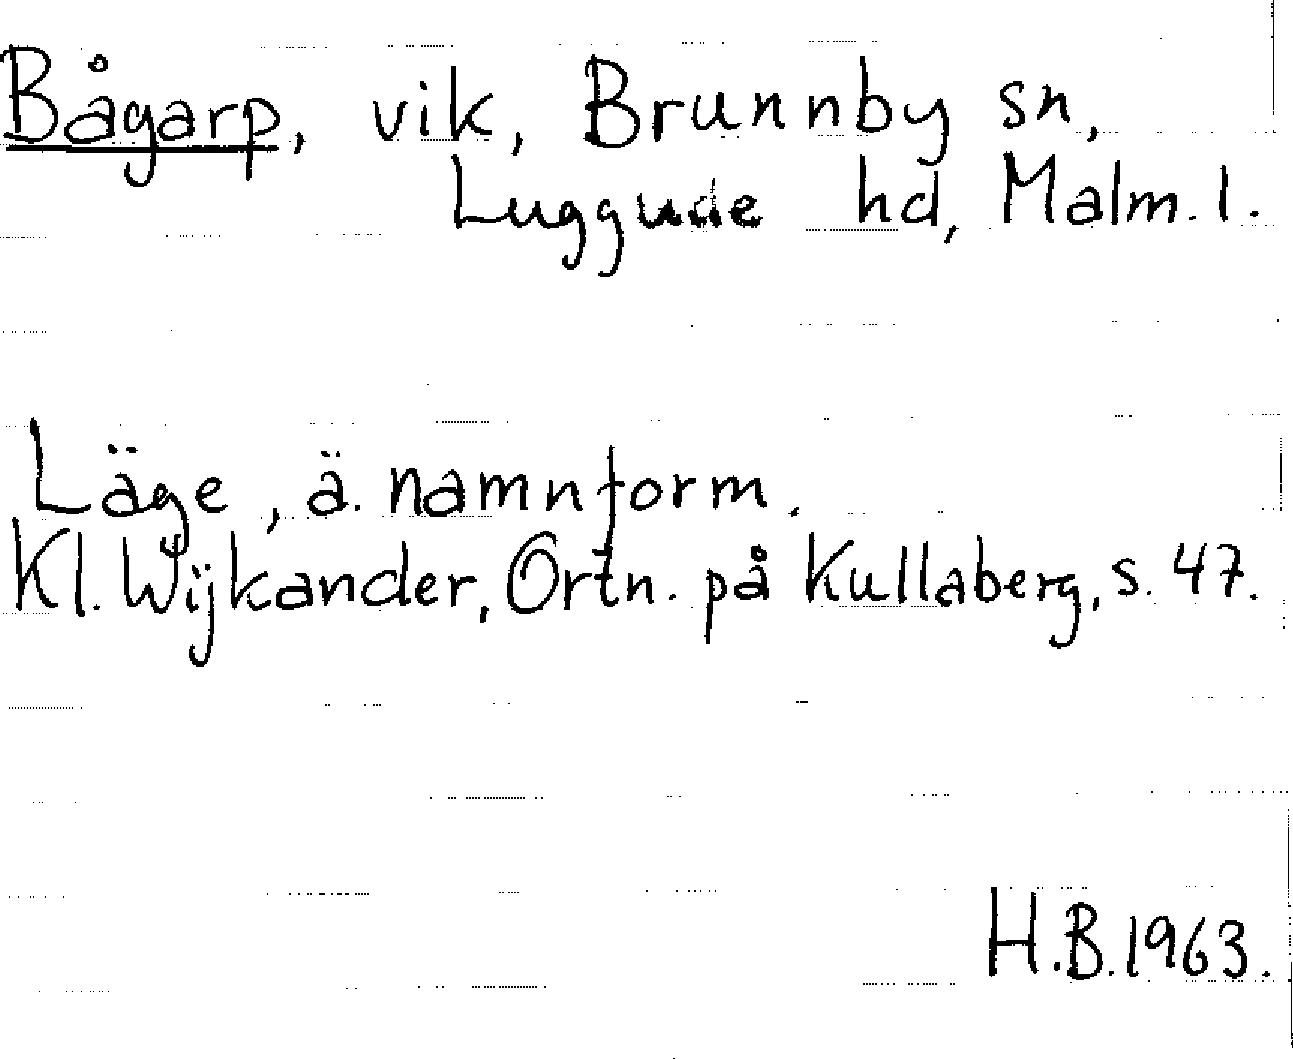 Bågarp, vik, Brunnby sn,
Luggude hd, Malm. l.
Läge, ä. namnform.
Kl. Wijkander, Ortn. på Kullaberg, s. 47.
H.B. 1963.